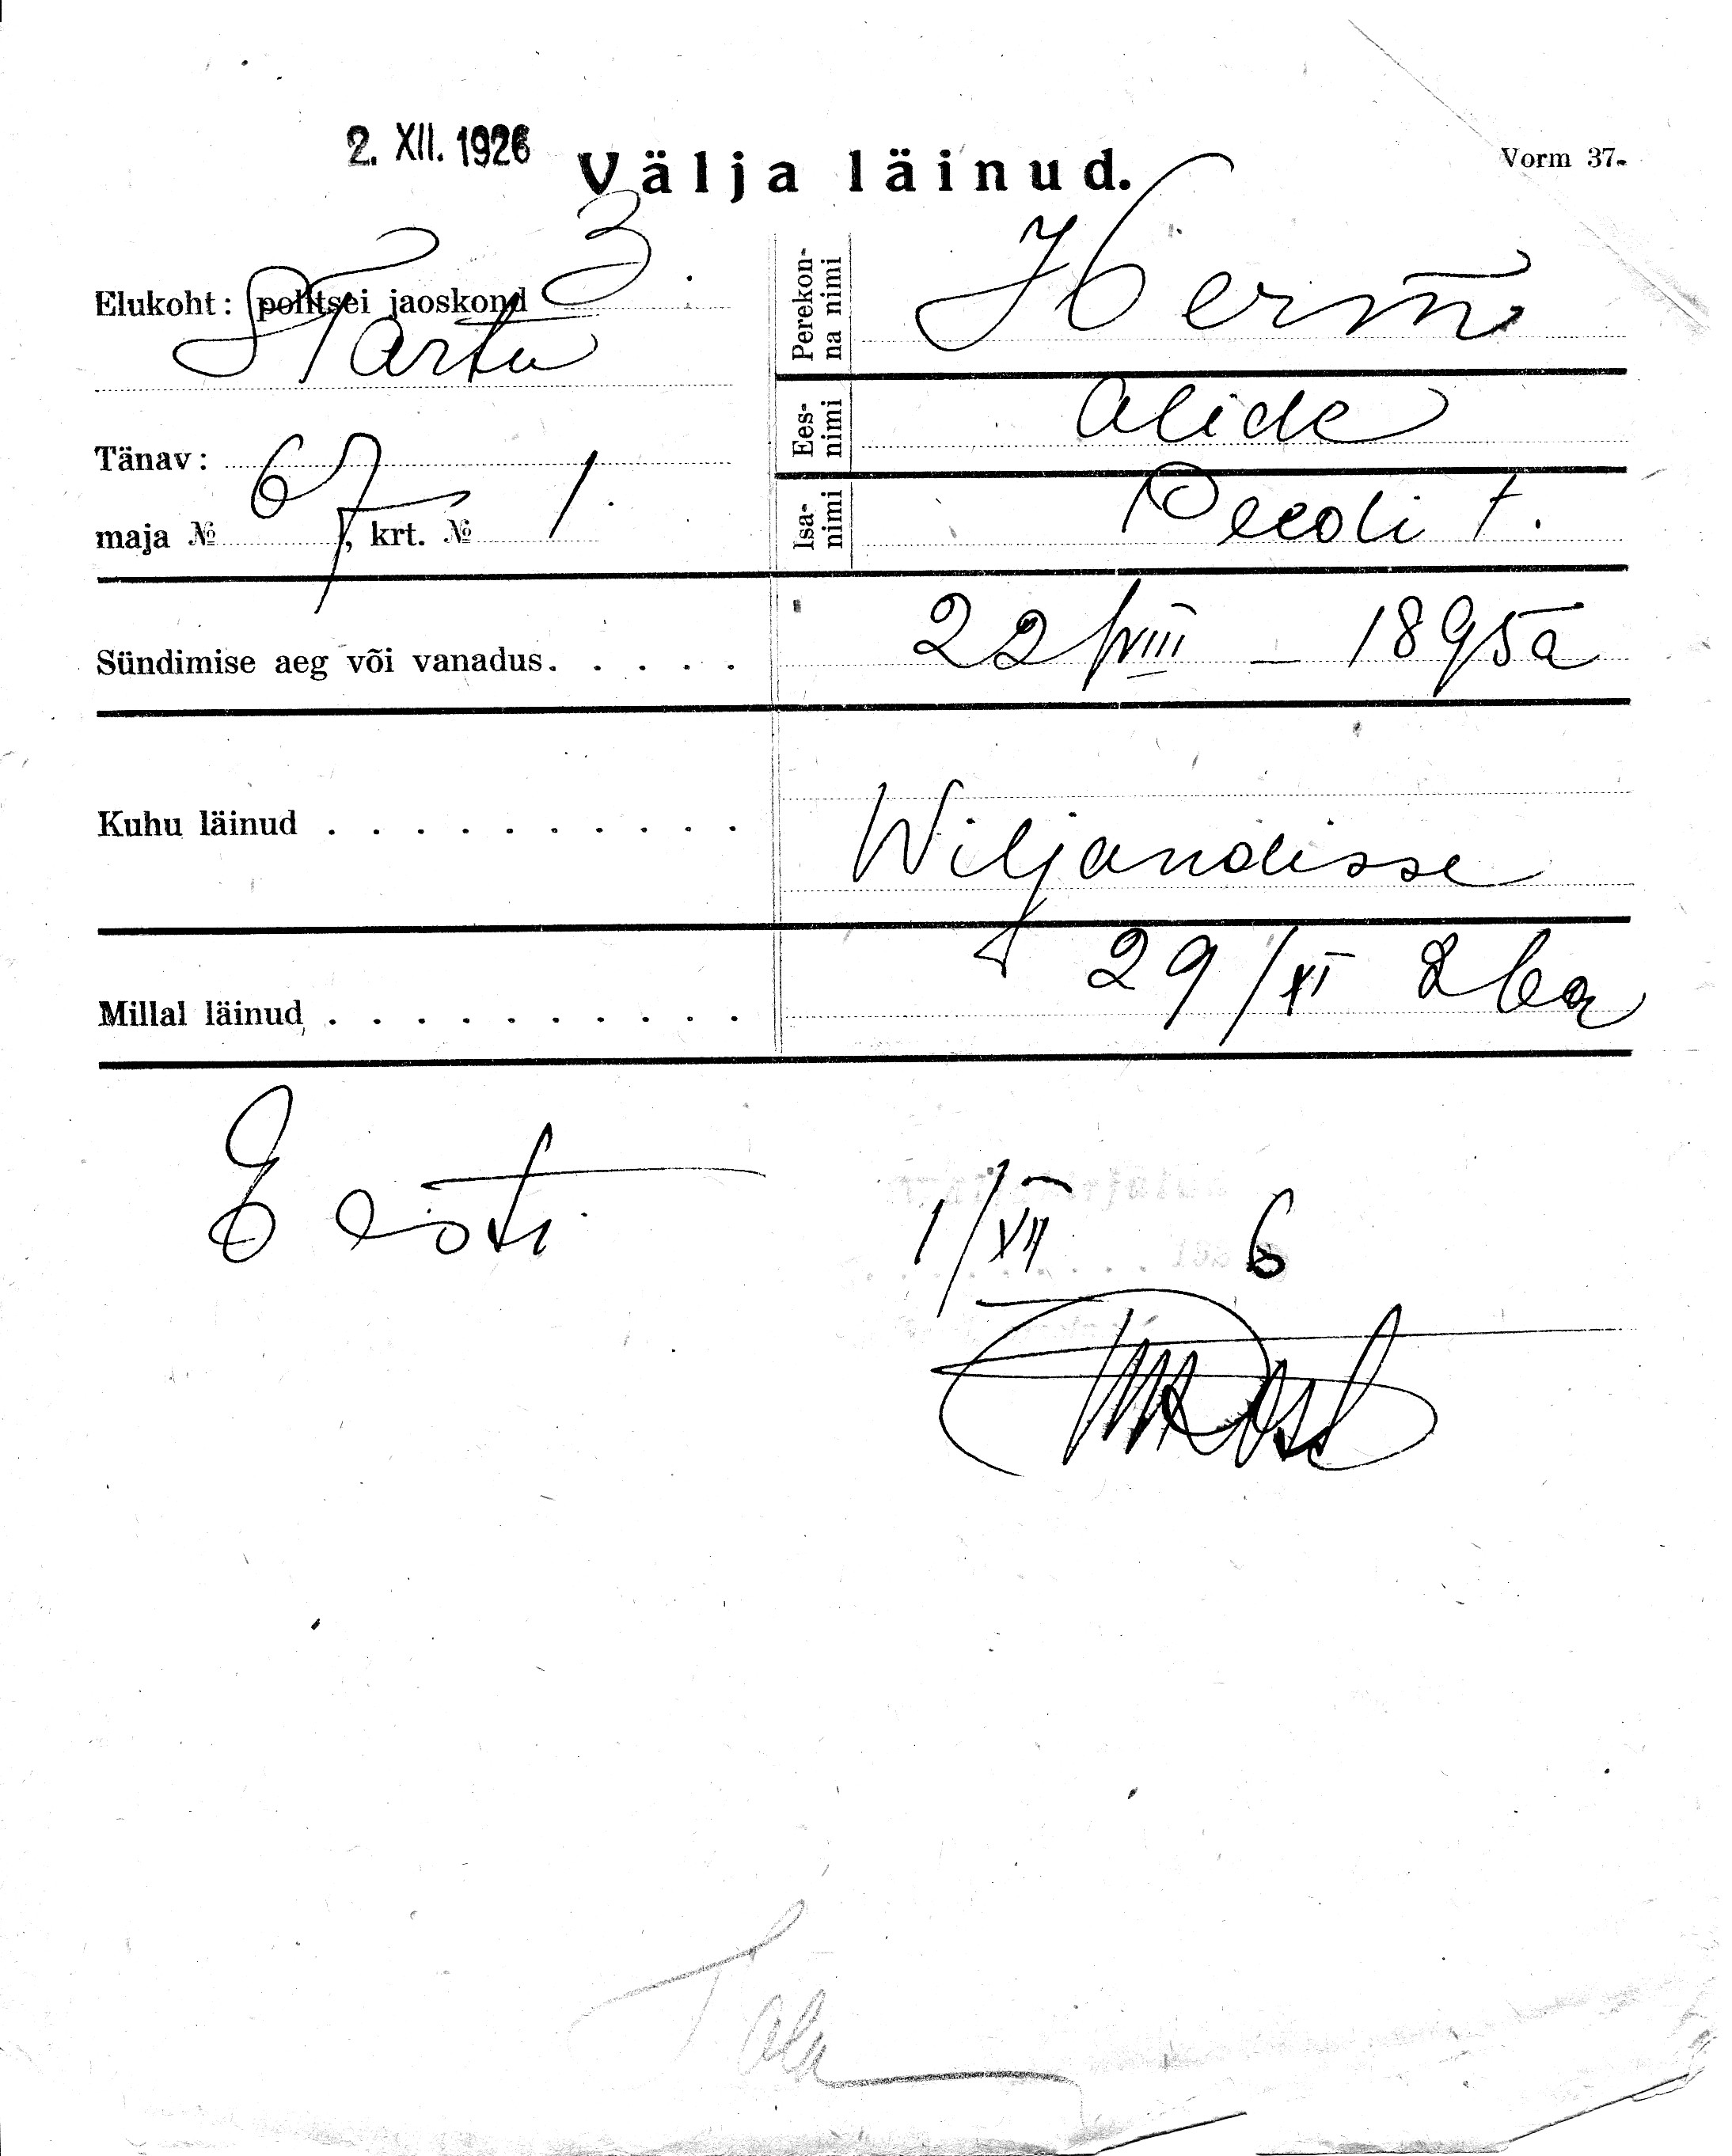 2. XII. 1926
Välja läinud.
Vorm 37.
Elukoht: politsei jaoskond 3.
Tartu
Tänav:
maja № 67, krt. № 1.
Perekonna nimi
Herm
Eesnimi
Alide
Isanimi
Peedi t.
Sündimise aeg või vanadus. . . . .
22/VIII – 1895 a
Kuhu läinud . . . . . . . . . .
Wiljandisse
Millal läinud . . . . . . . . . .
29/XI 26 a
Eesti
1/XII 6